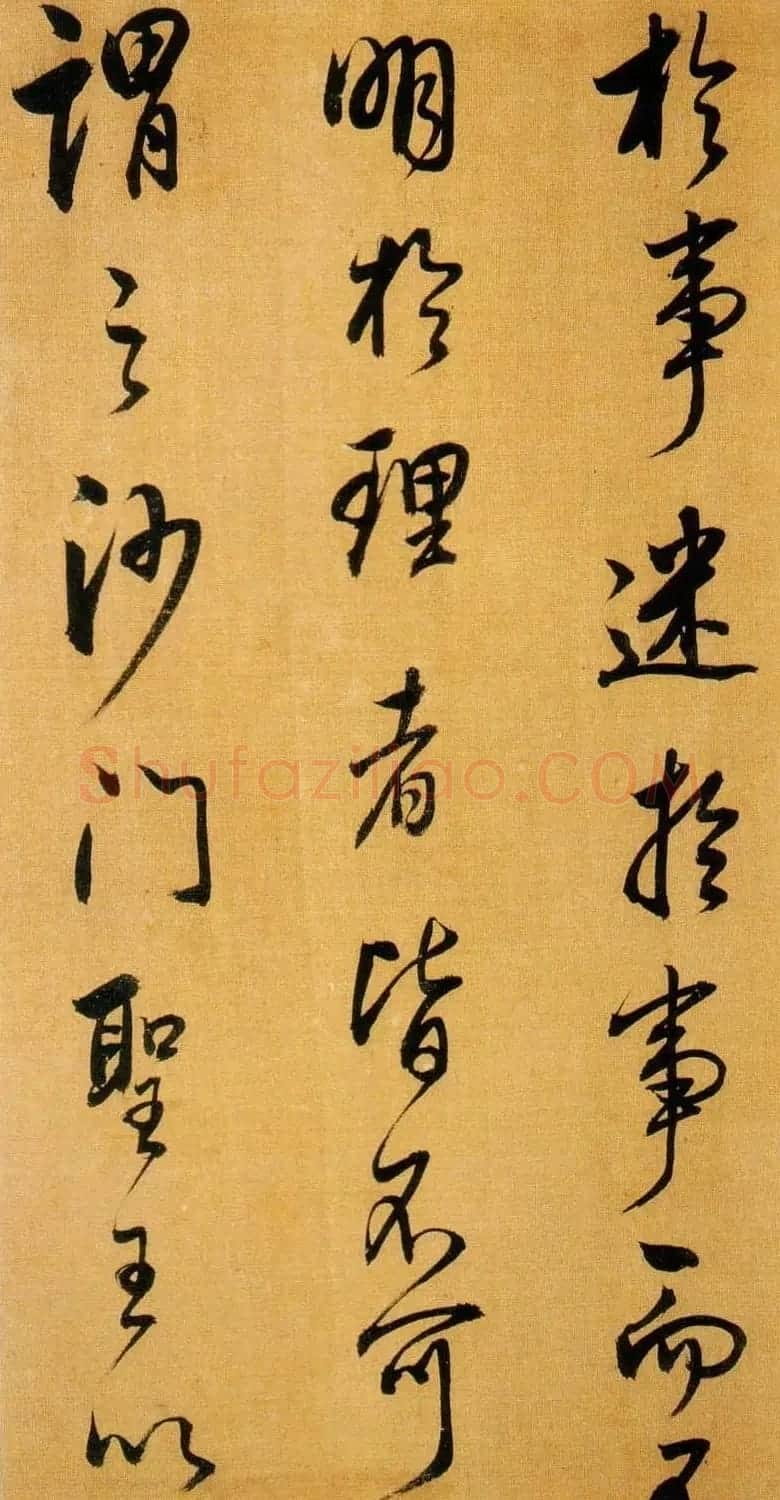 於事迷於事而
明於理者皆不可
謂之沙门聖王以
Shufaziliao.COM